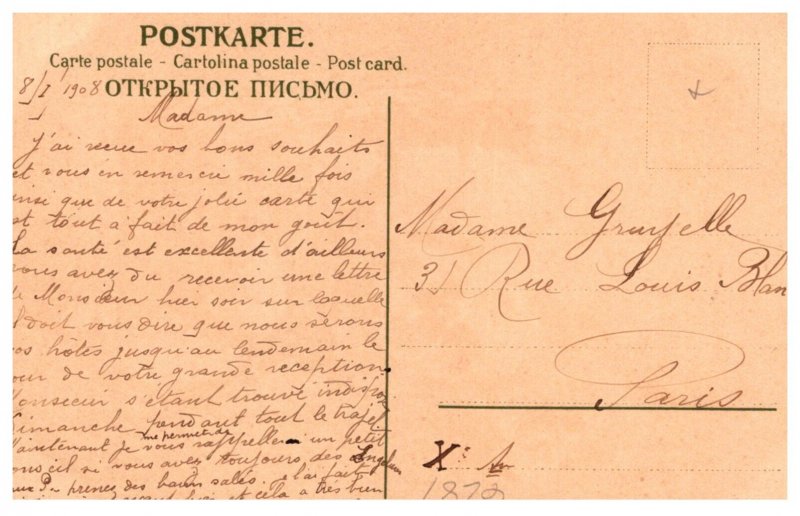 POSTKARTE.
Carte postale - Cartolina postale - Post card.
ОТКРЫТОЕ ПИСЬМО.
8/I 1908
Madame
J'ai reçue vos bons souhaits
et vous en remercie mille fois
insi que de votre jolie carte qui
st tout a fait de mon goût.
La santé est excellente d'ailleurs
vous avez du recevoir une lettre
de Monsieur hier soir sur laquelle
il doit vous dire que nous serons
vos hôtes jusqu'au lendemain le
our de votre grande reception
Monsieur s'étant trouvé indispo
Dimanche pendant tout le trajet
Maintenant je me permet de vous rappeller un petit
si vous avez toujours des Engelures
prenez des bains salés. l'ai fait
et cela a très bien
Madame
31 Rue Louis Blan
Paris
X
1872